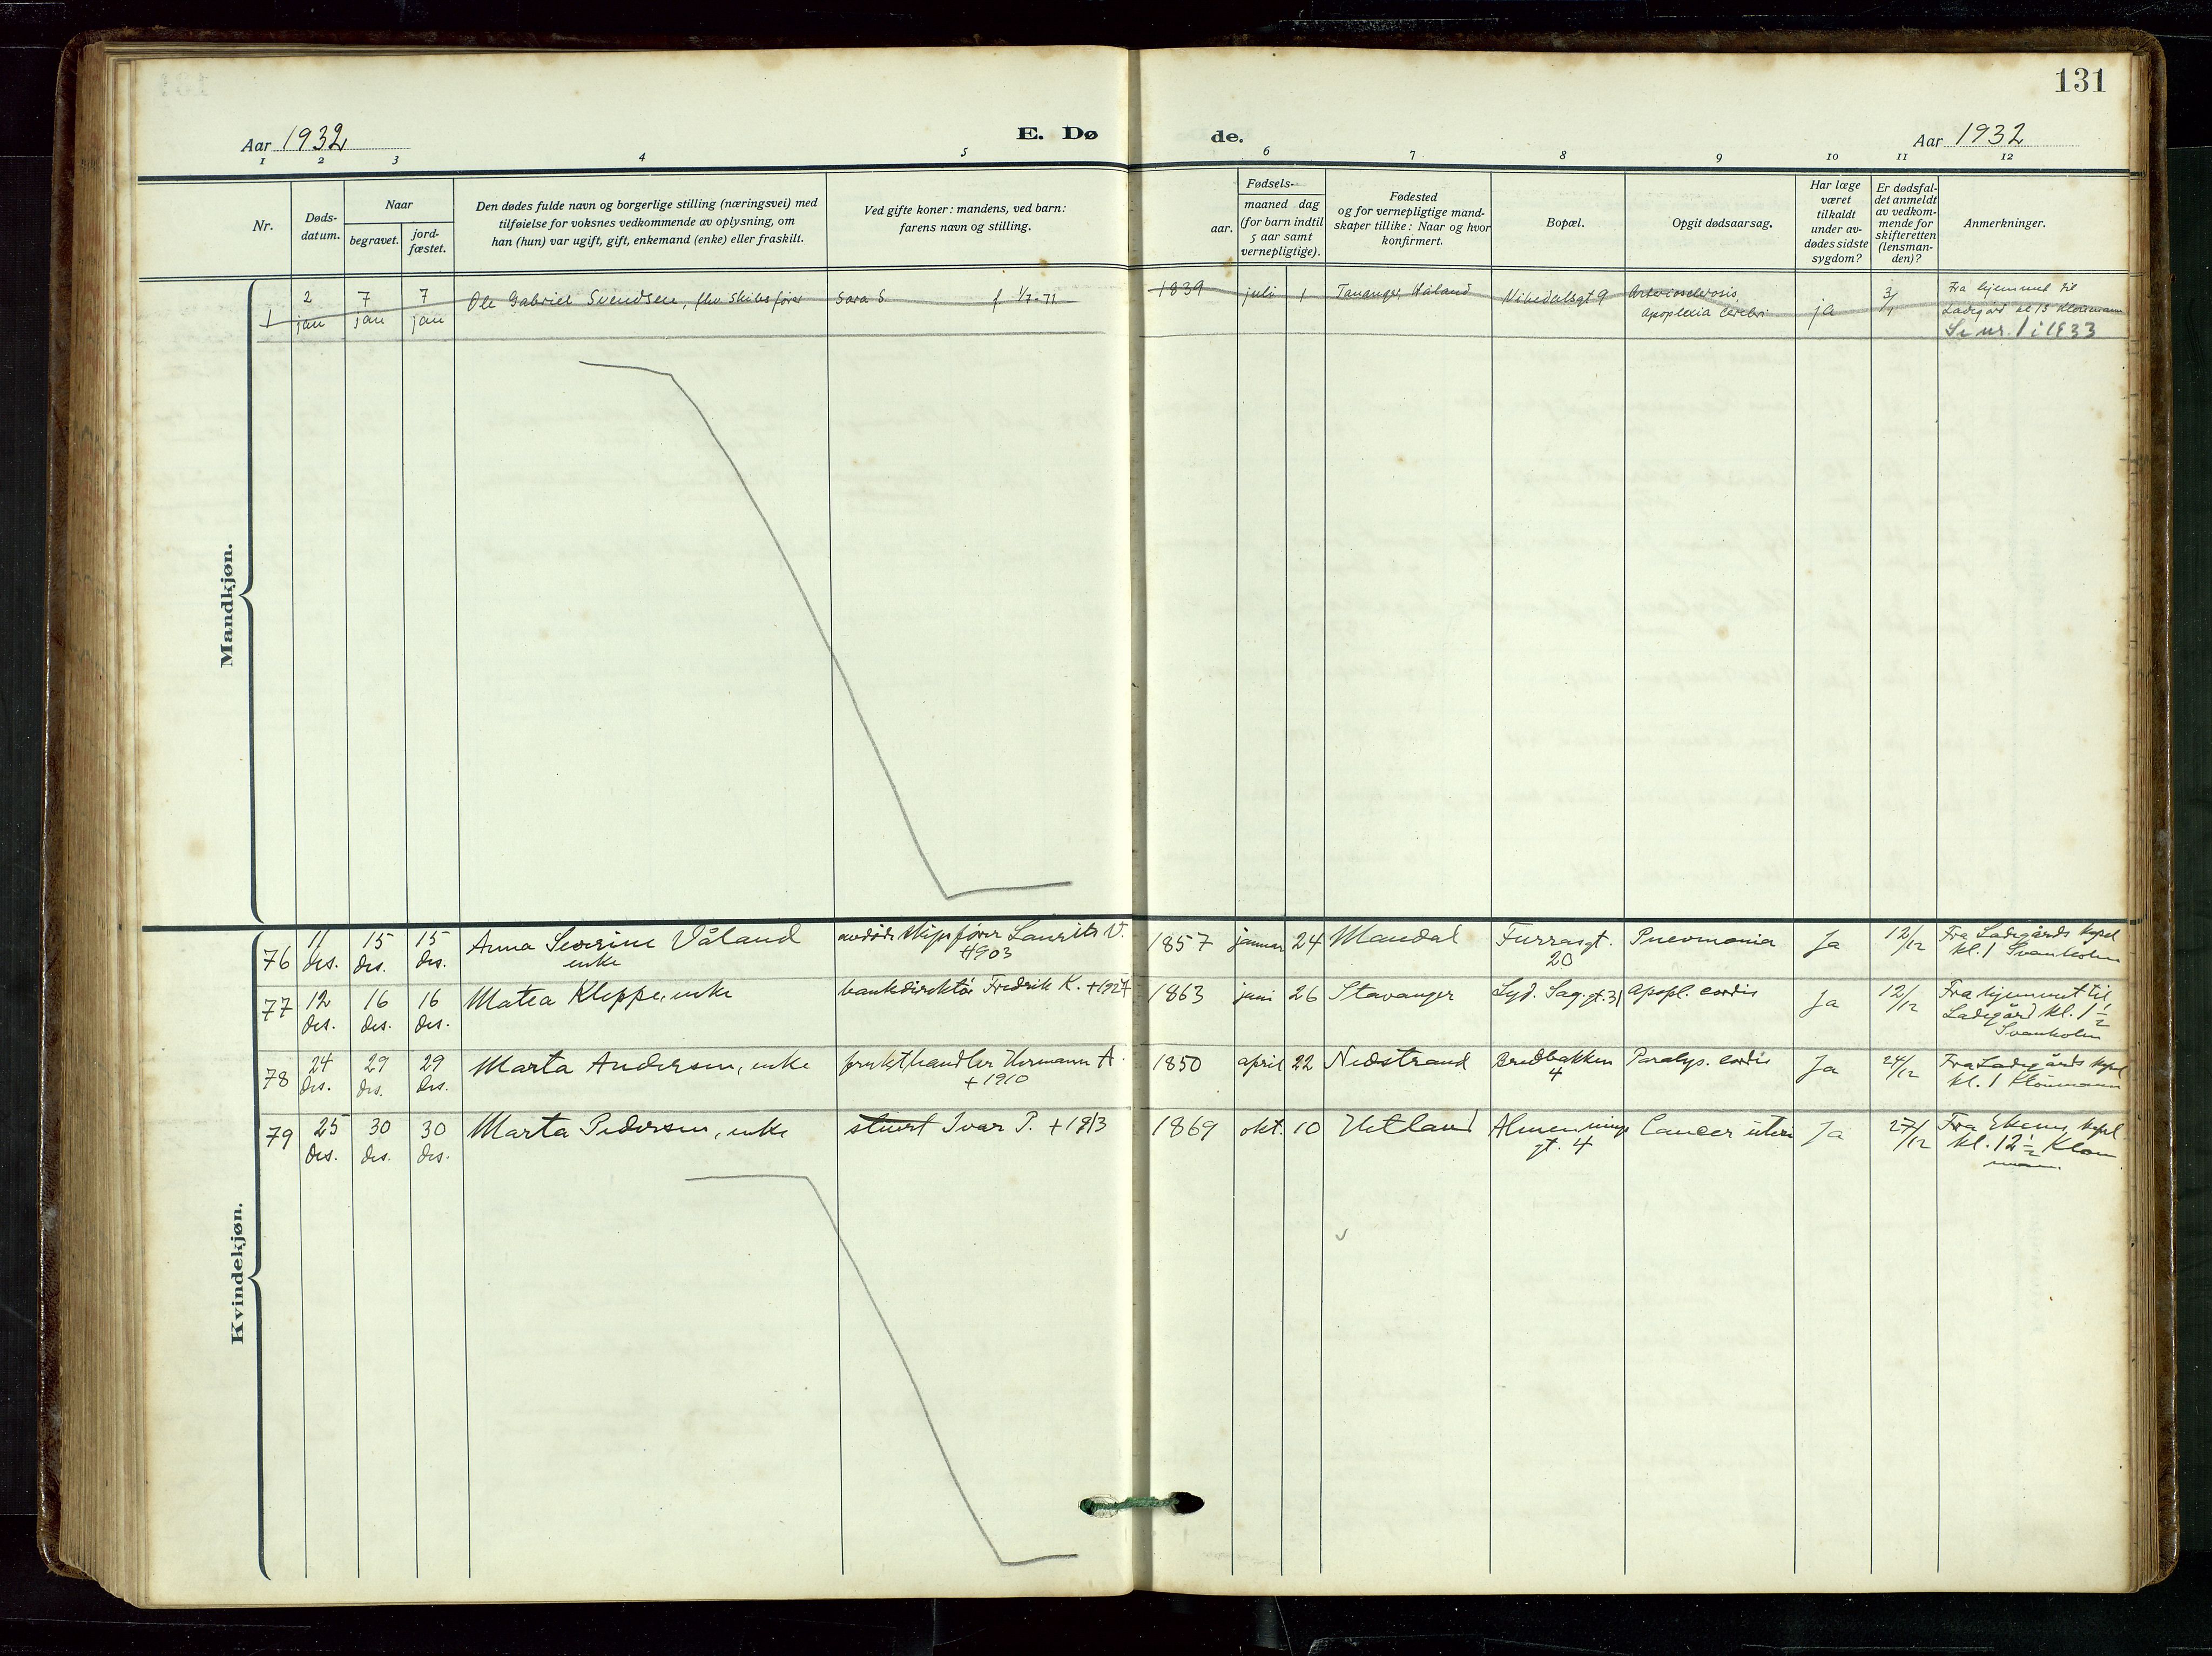 131
Aar 1932
E. Dø de.
Aar 1932
1 2 3 4 5 6 7 8 9 10 11 12
Nr.
Døds-
datum.
Naar
begravet.
jord-
fæstet.
Den dødes fulde navn og borgerlige stilling (næringsvei) med
tilføielse for voksnes vedkommende av oplysning, om
han (hun) var ugift, gift, enkemand (enke) eller fraskilt.
Ved gifte koner: mandens, ved barn:
farens navn og stilling.
Fødsels-
aar.
maaned dag
(for barn indtil
5 aar samt
vernepligtige).
Fødested
og for vernepligtige mand-
skaper tillike: Naar og hvor
konfirmert.
Bopæl.
Opgit dødsaarsag.
Har læge
været
tilkaldt
under av-
dødes sidste
sygdom?
Er dødsfal-
det anmeldt
av vedkom-
mende for
skifteretten
(lensman-
den)?
Anmerkninger.
Mandkjøn.
1 2 jan 7 jan 7 jan Ole Gabriel Svendsen, fhv skibsfører Sara S. f 1/7-71 1839 juli 1 Tananger, Håland Nikedalsgt 9 Arteriosclerosis, apoplexia cerebri ja 3/1 Fra hjemmet til
Ladegård kl 13 Klommann
Se nr. 1 i 1933
Kvindekjøn.
76 11 des. 15 des. 15 des. Anna Severine Våland
enke avdøde skipsfører Laurits V.
+1903 1857 januar 24 Mandal Furrasgt.
20 Pneumonia Ja 12/12 Fra Ladegårds kapel
kl. 1 Svanholm
77 12 des. 16 des. 16 des. Matea Kleppe, enke bankdirektør Fredrik K. +1927 1863 juni 26 Stavanger Lyd. Sag. gt. 31 Apopl. cordis Ja 12/12 Fra hjemmet til
Ladegård kl. 1 1/2
Svanholm
78 24 des. 29 des. 29 des. Marta Andersen, enke frukthandler Hermann A.
+1910 1850 april 22 Nedstrand Bredbakken
4 Paralys. cordis Ja 24/12 Fra Ladegårds kapel
kl. 1 Klommann
79 25 des. 30 des. 30 des. Marta Pedersen, enke stuert Ivar P. +1913 1869 okt. 10 Hetland Almennings
gt. 4 Cancer uteri Ja 27/12 Fra Ekens kapel
kl. 12 1/2 Klom
mann